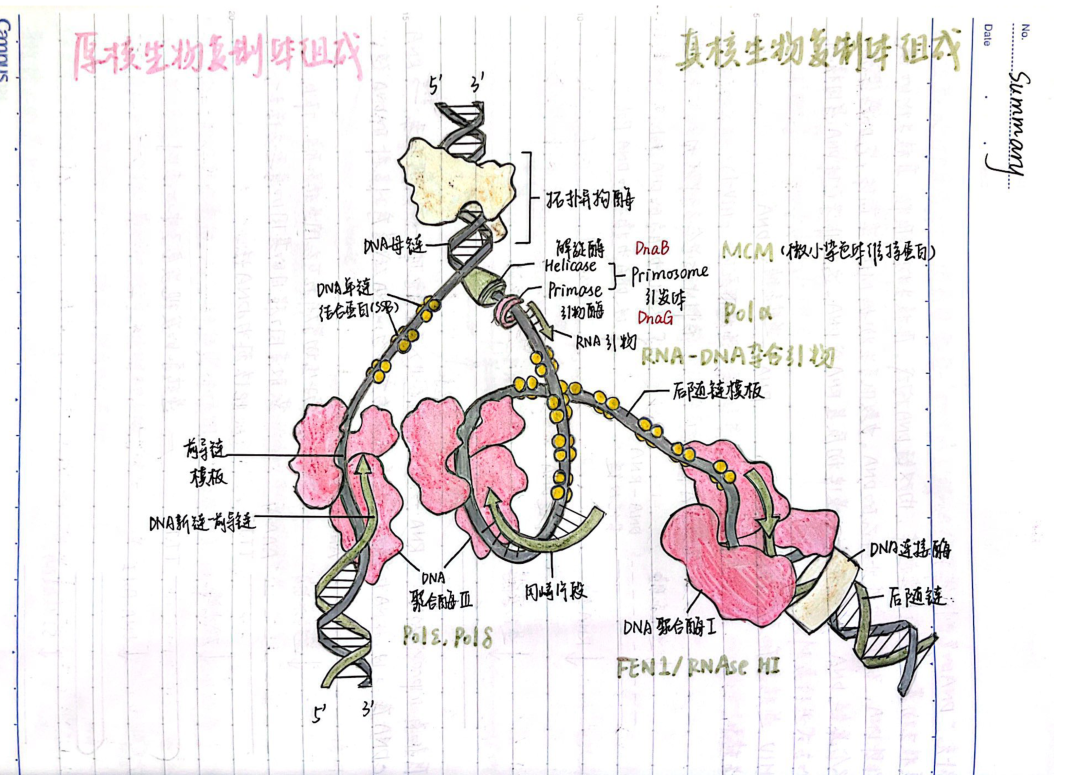 No.
Summary
Date
Campus
原核生物复制体组成
真核生物复制体组成
5' 3'
拓扑异构酶
DNA母链
解旋酶 DnaB
Helicase
MCM (微小染色体维持蛋白)
Primosome
引发体
Primase
引物酶
DnaG
Polα
DNA单链
结合蛋白(SSB)
RNA引物
RNA-DNA杂合引物
后随链模板
前导链
模板
DNA新链-前导链
DNA
聚合酶Ⅲ
Polε, Polδ
冈崎片段
DNA连接酶
后随链
DNA聚合酶Ⅰ
FEN1/RNAse HI
5' 3'